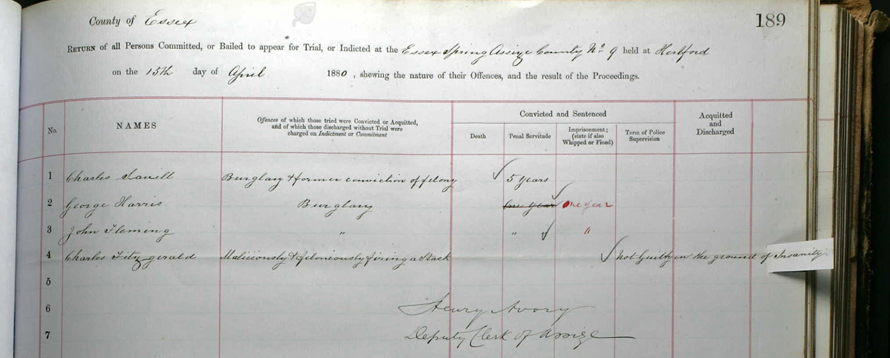 189
County of Essex
RETURN of all Persons Committed, or Bailed to appear for Trial, or Indicted at the Essex Spring Assize County No. 9 held at Hertford
on the 15th day of April 1880, shewing the nature of their Offences, and the result of the Proceedings.
No.
NAMES
Offences of which those tried were Convicted or Acquitted,
and of which those discharged without Trial were
charged on Indictment or Commitment
Convicted and Sentenced
Death
Penal Servitude
Imprisonment;
(state if also
Whipped or Fined)
Term of Police
Supervision
Acquitted
and
Discharged
1 Charles Burglary & former conviction of felony 5 years
2 George Harris Burglary One year One year
3 John Fleming " " "
4 Charles Fitzgerald Maliciously & feloniously firing a Stack Not Guilty on the ground of Insanity
5
6 Henry Avory
7 Deputy Clerk of Assize